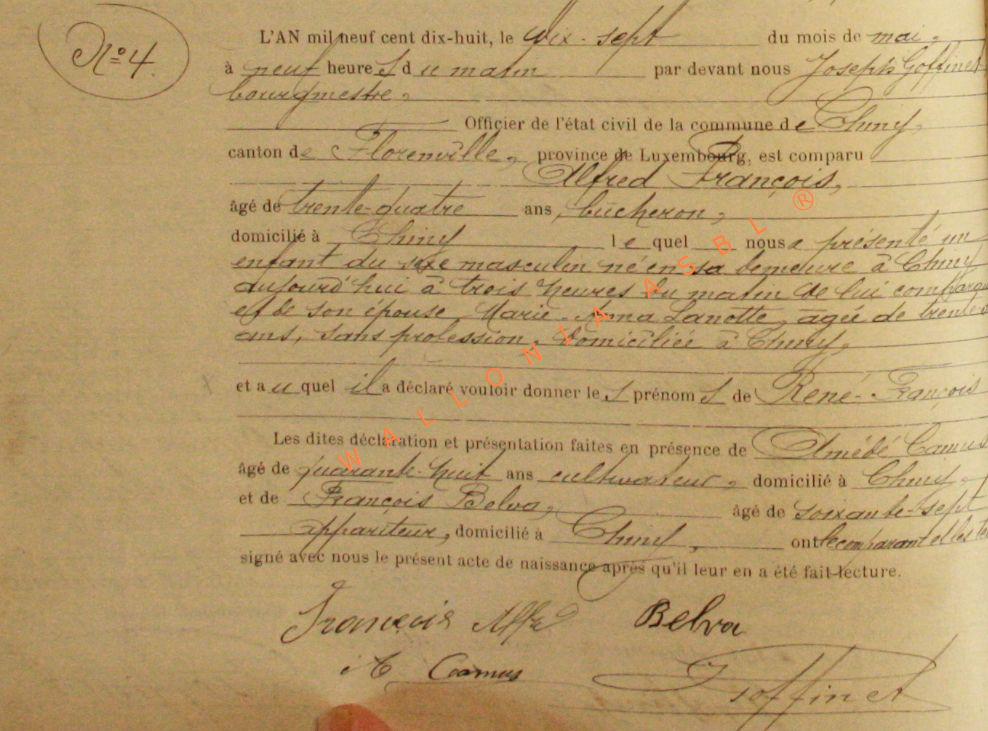 N° 4.
L'AN mil neuf cent dix-huit, le dix-sept du mois de mai,
à neuf heures du matin par devant nous Joseph Goffinet
bourgmestre,
Officier de l'état civil de la commune de Chiny,
canton de Florenville, province de Luxembourg, est comparu
Alfred François,
âgé de trente-quatre ans, bûcheron,
domicilié à Chiny lequel nous a présenté un
enfant du sexe masculin né en sa demeure à Chiny
aujourd'hui à trois heures du matin de lui comparant
et de son épouse, Marie-Anna Lanotte, âgée de trente
ans, sans profession, domiciliée à Chiny,
et auquel il a déclaré vouloir donner les prénoms de René-François
Les dites déclaration et présentation faites en présence de Amédé Camus
âgé de quarante-huit ans cultivateur, domicilié à Chiny,
et de François Belva, âgé de soixante-sept
appariteur, domicilié à Chiny, ont le comparant et les
signé avec nous le présent acte de naissance après qu'il leur en a été fait lecture.
François Alfred Belva
A Camus Goffinet
WALLONIA ASBL ®